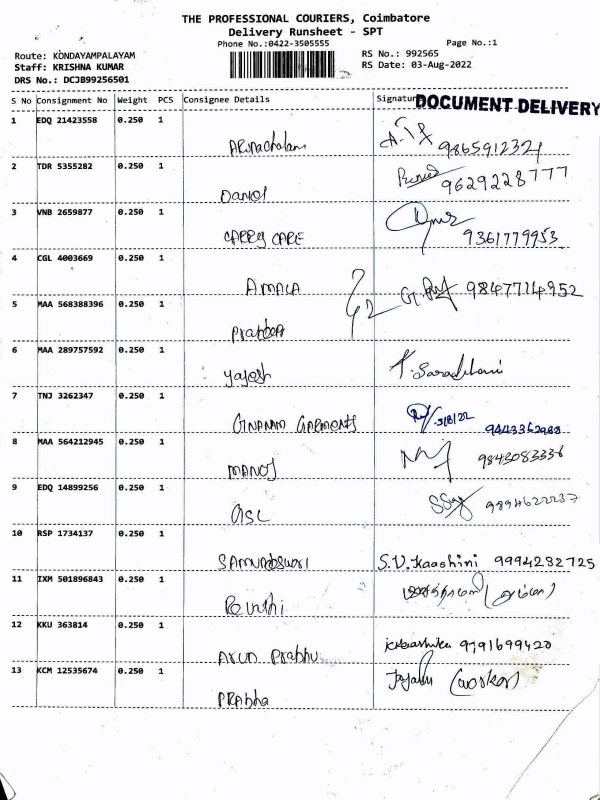 THE PROFESSIONAL COURIERS, Coimbatore
Delivery Runsheet - SPT
Phone No.:0422-3505555
Page No.:1
Route: KONDAYAMPALAYAM
RS No.: 992565
Staff: KRISHNA KUMAR
RS Date: 03-Aug-2022
DRS No.: DCJB99256501
S No Consignment No Weight PCS Consignee Details Signatur
DOCUMENT DELIVERY
1 EDQ 21423558 0.250 1
Arunachalam 9865912321
2 TDR 5355282 0.250 1
Daniel 9629228777
3 VNB 2659877 0.250 1
CARRY CARE 9361779953
4 CGL 4003669 0.250 1
AMALA 9847714952
5 MAA 568388396 0.250 1
6 MAA 289757592 0.250 1
Yagesh
7 TNJ 3262347 0.250 1
GNANAM GARMENTS 3/8/22 9443362988
8 MAA 564212945 0.250 1
MANOJ 9843083336
9 EDQ 14899256 0.250 1
9894622237
10 RSP 1734137 0.250 1
S.V.Kaashini 9994282725
11 IXM 501896843 0.250 1
12 KKU 363814 0.250 1
Arun Prabhu 9791699420
13 KCM 12535674 0.250 1
PRabha (worker)